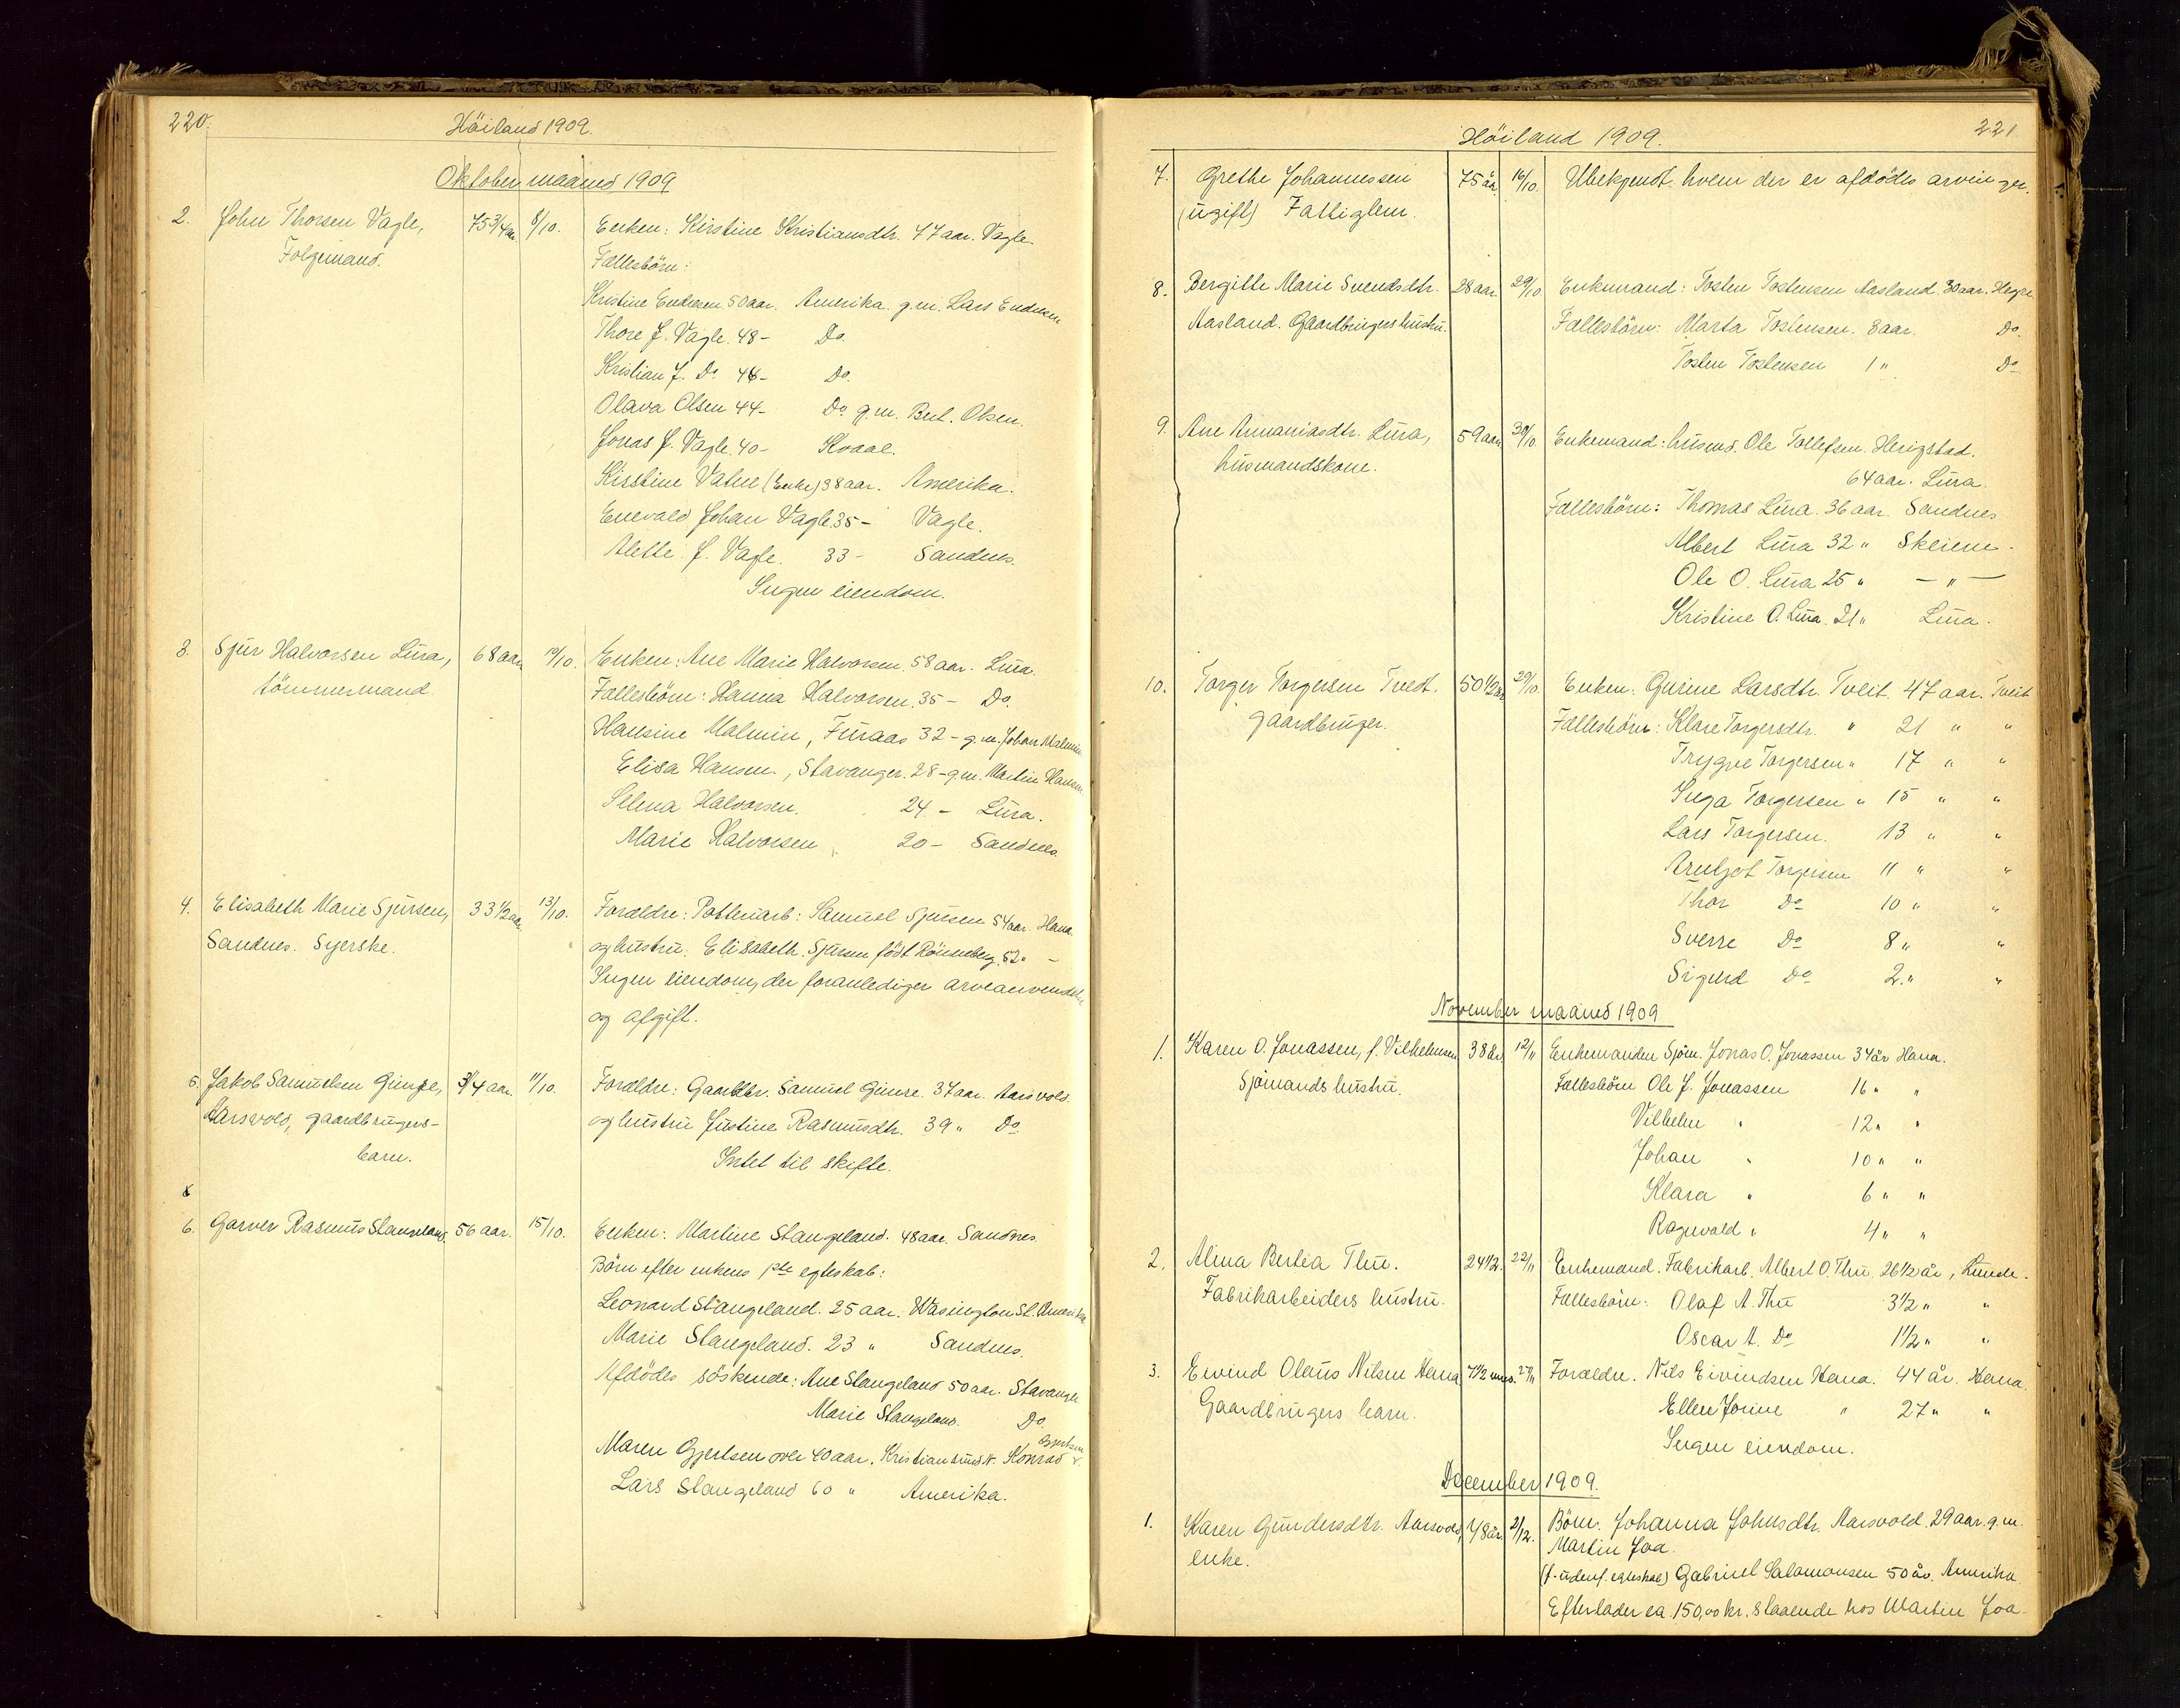 220.
Höiland 1909.
Oktober maaned 1909
2. John Thorsen Vagle, 75 3/4 aar 8/10. Enken: Kirstine Kristiansdtr. 77 aar. Vagle.
Folgemand. Fællesbörn:
Kristine Endresen 50 aar. Amerika. g.m. Lars Endresen
Thore J. Vagle. 48 - Do.
Kristian J. Do 46 - Do.
Olava Olsen 44 - Do g.m. Bert. Olsen.
Jonas J. Vagle. 40 - Kvaal.
Kirstine Vatne (Enke) 38 aar. Amerika.
Enevald Johan Vagle 35 - Vagle.
Alette J. Vagle. 33 - Sandnes.
Ingen eiendom.
3. Sjur Halvorsen Lura, 68 aar 10/10. Enken: Ane Marie Halvorsen 58 aar. Lura.
tömmermand. Fællesbörn: Hanna Halvorsen. 35 - Do.
Hansine Malmin, Furaas 32 - g.m. Johan Malmin
Elisa Hansen, Stavanger. 28 - g.m. Martin Hansen
Selma Halvorsen. 24 - Lura.
Marie Halvorsen 20 - Sandnes.
4. Elisabeth Marie Sjursen, 33 1/2 aar. 13/10. Forældre: Potteriarb: Samuel Sjursen 54 aar. Hana.
Sandnes. Syerske. og hustru. Elisabeth. Sjursen födt Rönneberg. 52 " -
Ingen eiendom, der foranlediger arveanvendelse
og afgift.
5. Jakob Samuelsen Gimre, 3/4 aar. 11/10. Forældre: Gaardbr. Samuel Gimre. 37 aar. Aarsvold.
Aarsvold, gaardbrugers- og hustru Justine Rasmusdtr. 39 " Do
barn. Intet til skifte.
6. Garver Rasmus Stangeland. 56 aar. 15/10. Enken: Martine Stangeland. 48 aar. Sandnes.
Börn efter enkens 1ste egteskab:
Leonard Stangeland. 25 aar. Wasington St. Amerika
Marie Stangeland. 23 " Sandnes.
Afdödes söskende: Ane Stangeland 50 aar. Stavanger
Marie Stangeland. Do.
Maren Gjertsen over 40 aar. Kristiansund N. Konrad Gjertsen
Lars Stangeland 60 " Amerika.
221.
Höiland 1909.
7. Grethe Johannessen 75 aar 16/10. Ubekjendt hvem der er afdödes arvinger.
(ugift) Fattiglem.
8. Bergitte Marie Svendsdtr. 28 aar 29/10 Enkemand: Tosten Tostensen Aasland. 30 aar. Hegre.
Aasland. Gaardbrugers hustru. Fællesbörn: Marta Tostensen. 3 aar. Do.
Tosten Tostensen 1 " Do
9. Ane Ananiasdtr. Lura, 59 aar 30/10. Enkemand: husmd. Ole Tollefsen Herigstad.
husmandskone. 64 aar. Lura.
Fællesbörn: Thomas Lura. 36 aar. Sandnes
Albert Lura 32 " Skeiene.
Ole O. Lura 25 " - " -
Kristine O. Lura. 21 " Lura.
10. Torger Torgersen Tvedt. 50 1/2 aar 29/10. Enken: Gurine Larsdtr. Tveit. 47 aar. Tveit
gaardbruger. Fællesbörn: Klare Torgersdtr. " 21 " "
Trygve Torgersen " 17 " "
Inga Torgersen " 15 " "
Lars Torgersen. 13 " "
Arntgot Torgersen 11 " "
Thor Do 10 " "
Sverre Do 8 " "
Sigurd Do 2. " "
November maaned 1909
1. Karen O. Jonassen, f. Vilhelmsen 38 år 12/11 Enkemanden Sjöm. Jonas O. Jonassen 34 år Hana.
Sjömands hustru. Fællesbörn Ole J. Jonassen 16 " "
Vilhelm " 12 " "
Johan " 10 " "
Klara " 6 " "
Ragnvald " 4 " "
2. Alma Bertea Thu. 24 1/2. 22/11 Enkemand. Fabrikarb. Albert O. Thu 26 1/2 år, Lunde.
Fabrikarbeiders hustru. Fællesbörn: Olaf A. Thu 3 1/2 " "
Oscar A. Do 1 1/2 " "
3. Eivind Olaus Nilsen Hana 7 1/2 mns. 27/11 Forældre. Nils Eivindsen Hana. 44 år. Hana.
Gaardbrugers barn. Ellen Jorine " 27 " "
Ingen eiendom.
December 1909.
1. Karen Gundersdtr. Aarsvold, 78 år 2/12. Börn. Johanna Johnsdtr. Aarsvold. 29 aar. g.m.
enke. Martin Joa.
(f. udenf. egteskab) Gabriel Salamonsen 50 år. Amerika
Efterlader ca 150,00 kr. staaende hos Martin Joa.